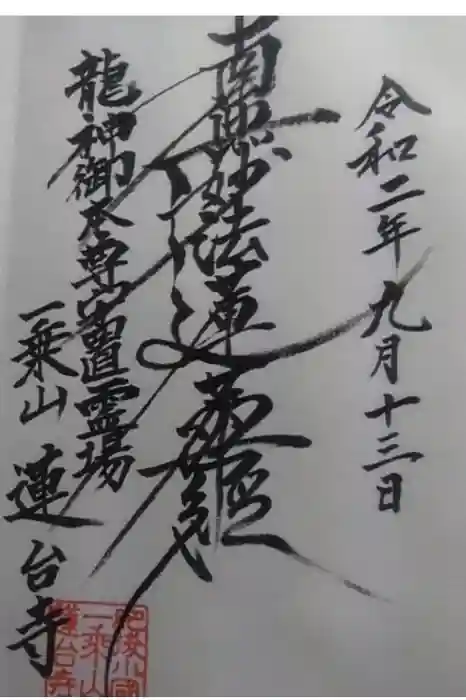 令和二年九月十三日
南無妙法蓮華經
龍神御本尊安置霊場
一乗山 蓮台寺
肥後小國
一乗山
蓮台寺